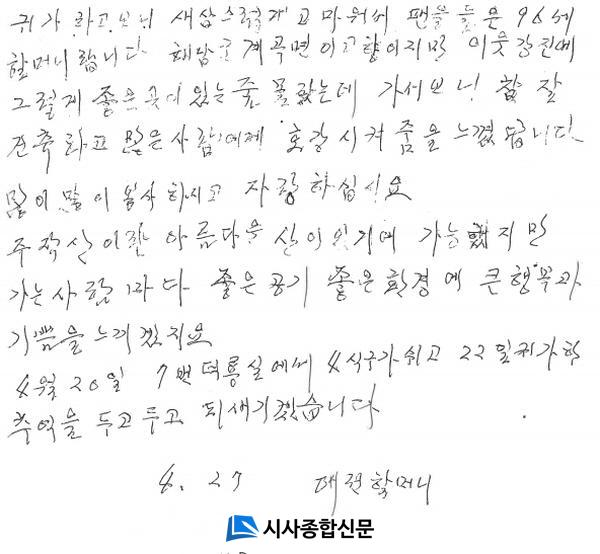 귀가 하고보니 새삼스럽게 고마워서 팬을 들은 96세
할머니랍니다 해남군 계곡면이 고향이지만 이웃 강진에
그렇게 좋은곳이 있는줄 몰랐는데 가서보니 참 잘
건축하고 많은사람에게 호강시켜줌을 느꼈답니다
많이많이 봉사하시고 자랑하십시요
주작산이란 아름다운 산이 있기에 가능했지만
가는사람마다 좋은공기 좋은환경에 큰행복과
기쁨을 느끼겠지요
4월 20일 7번 덕룡실에서 4식구가쉬고 22일귀가한
추억을 두고두고 되새기겠습니다
4. 27 대전할머니
시사종합신문